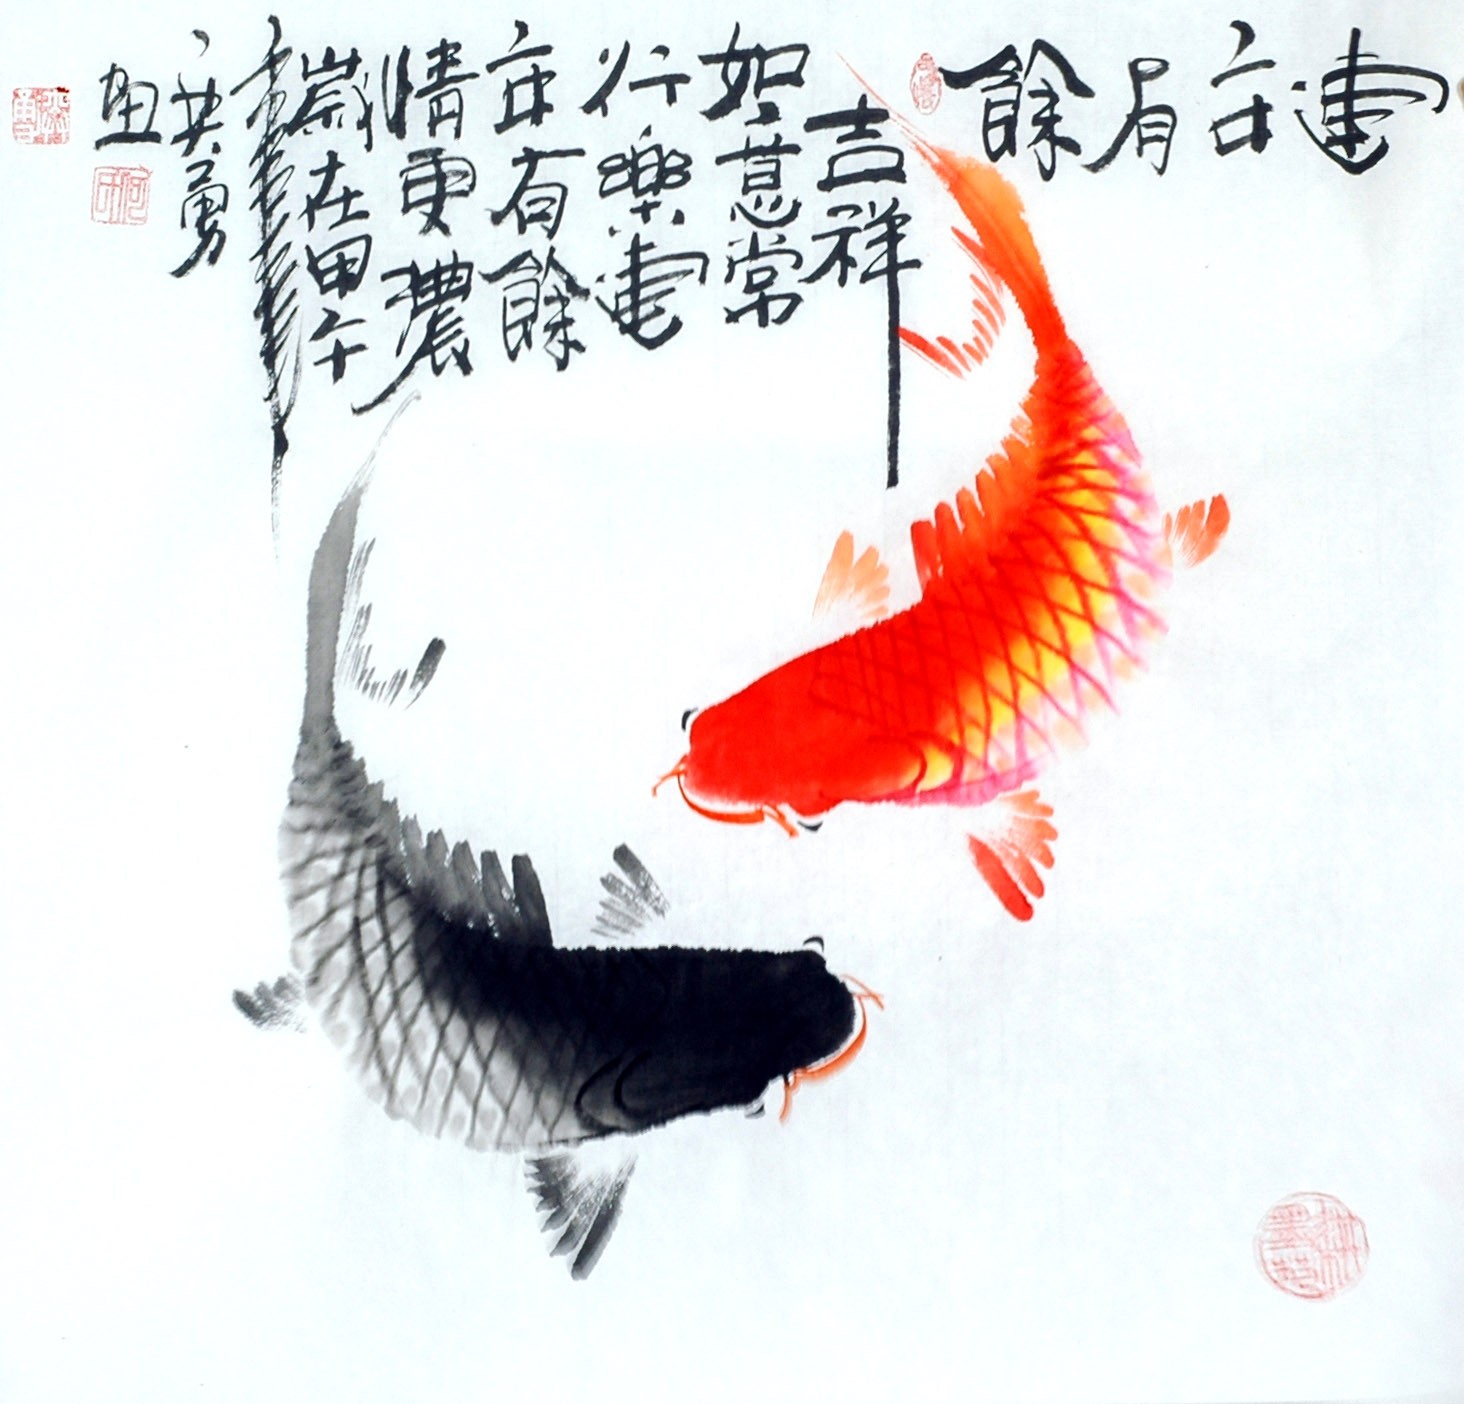 連年有餘
吉祥
如意常
行樂連
年有餘
情更濃
歲在甲午
英勇
画